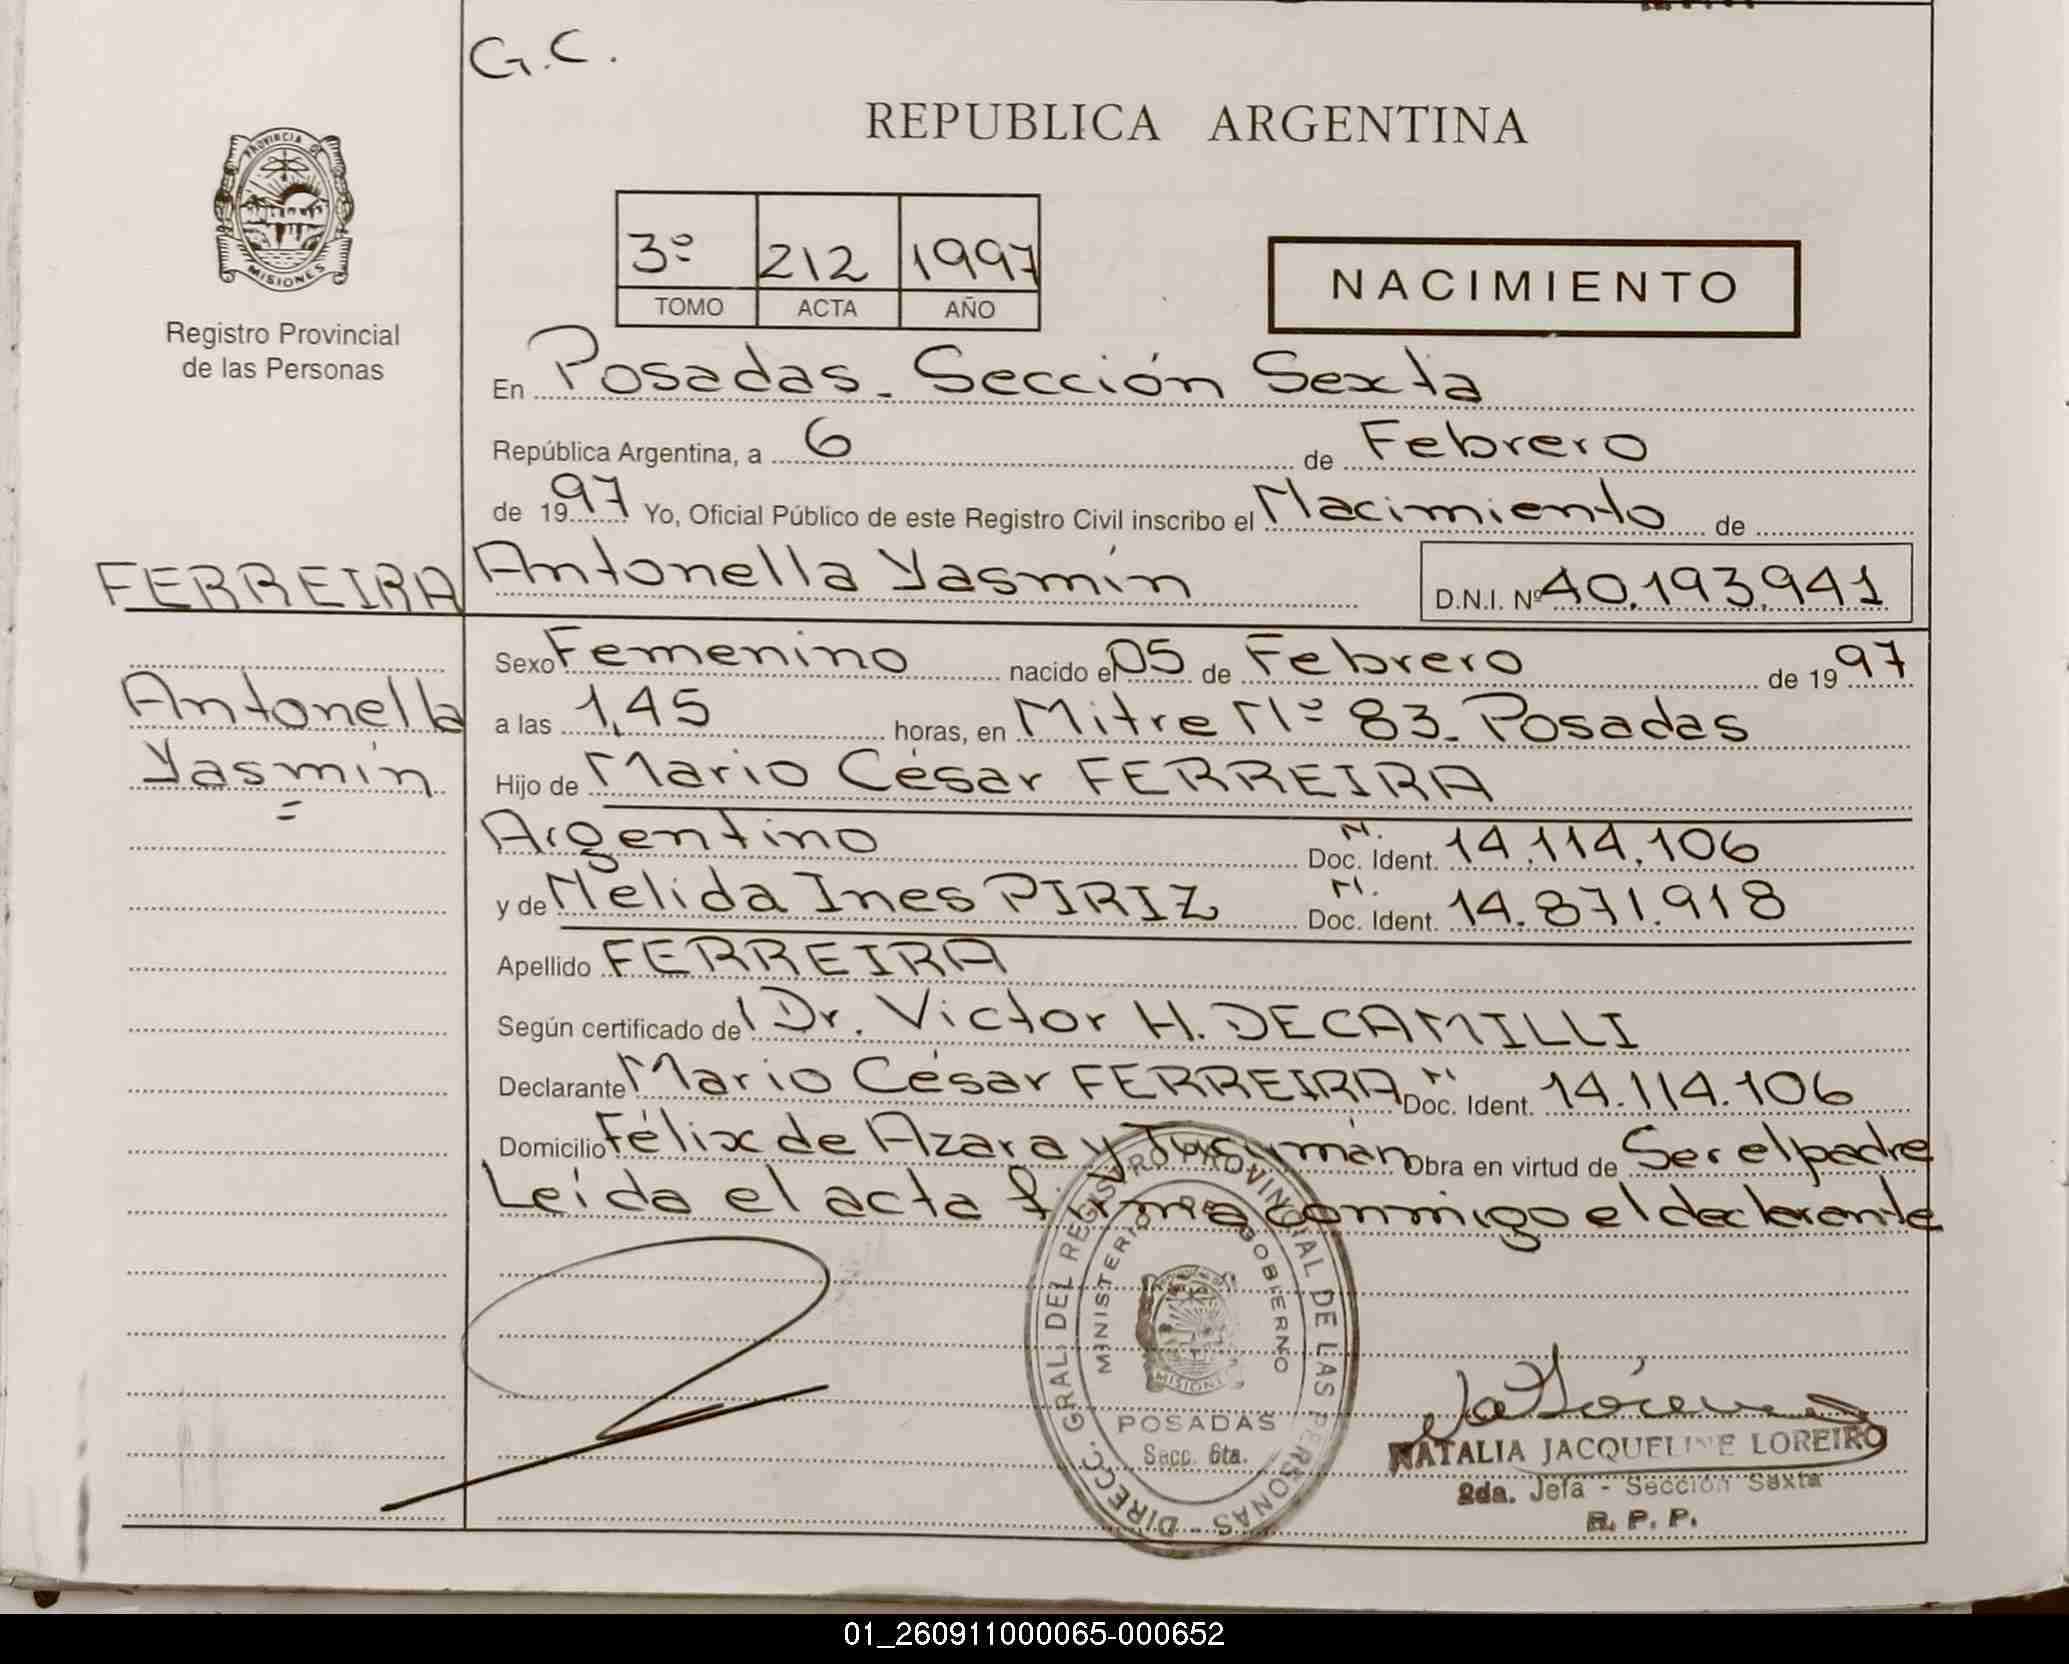 G.C.
REPUBLICA ARGENTINA
PROVINCIA DE
MISIONES
Registro Provincial
de las Personas
3º 212 1997
TOMO ACTA AÑO
NACIMIENTO
En Posadas. Sección Sexta
República Argentina, a 6 de Febrero
de 1997 Yo, Oficial Público de este Registro Civil inscribo el Nacimiento de
FERREIRA Antonella Yasmín D.N.I. Nº 40.193.941
Sexo Femenino nacido el 05 de Febrero de 1997
Antonella
a las 1,45 horas, en Mitre Nº 83. Posadas
Yasmín
Hijo de Mario César FERREIRA
Argentino N. Doc. Ident. 14.114.106
y de Nelida Ines PIRIZ N. Doc. Ident. 14.871.918
Apellido FERREIRA
Según certificado de Dr. Victor H. DECAMILLI
Declarante Mario César FERREIRA N. Doc. Ident. 14.114.106
Domicilio Félix de Azara y Tucumán Obra en virtud de Ser el padre
Leída el acta firma conmigo el declarante
DIRECC. GRAL. DEL REGISTRO PROVINCIAL DE LAS PERSONAS
MINISTERIO DE GOBIERNO
MISIONES
POSADAS
Secc. 6ta.
NATALIA JACQUELINE LOREIRO
2da. Jefa - Sección Sexta
R. P. P.
01_260911000065-000652